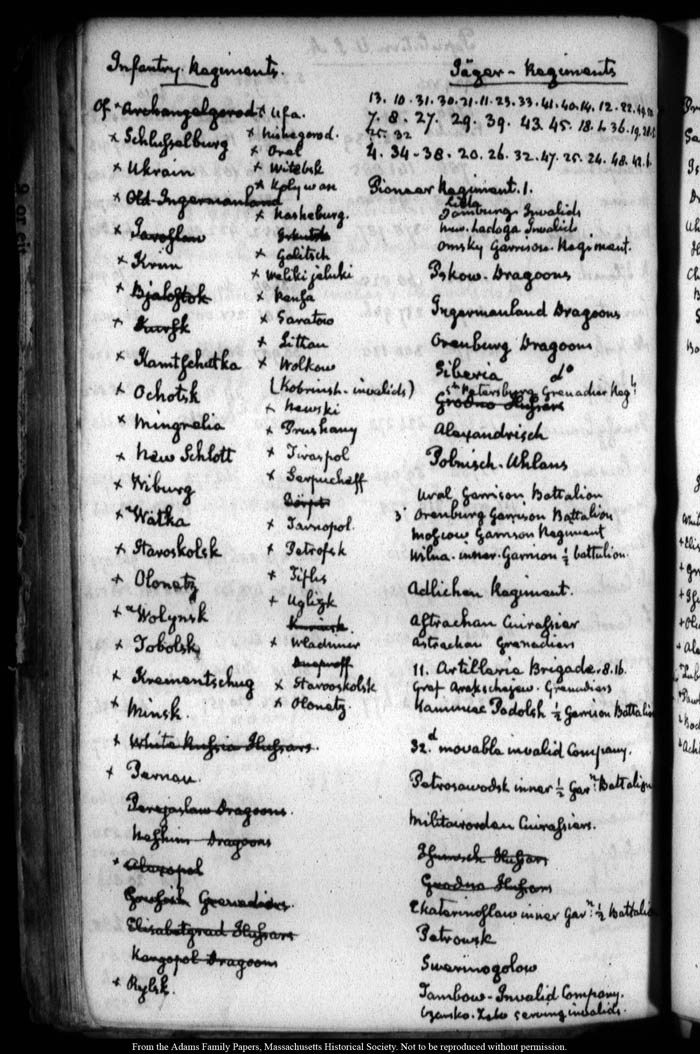 Infantry Regiments.
Of × Archangelgorod
× Schlusselburg
× Ukrain
× Old Ingermanland
× Jaroslaw
× Krim
× Bjalostok
× Kursk
× Kamtschatka
× Ochotsk
× Mingrelia
× New Schlott
× Wiburg
× Watka
× Staroskolsk
× Olonetz
× Wolynsk
× Tobolsk
× Krementschug
× Minsk
× White Russia Hussars.
× Pernau.
Perejaslaw Dragoons.
Neshin Dragoons
× Alexopol
Elisabetgrad Hussars
Kargopol Dragoons
× Rylsk.
× Ufa.
× Nishegorod.
× Orel
× Witebsk
× Kolywan
× Nasheburg.
Irkutsk
× Galitsch
× Welikijeluki
× Pensa
× Saratow
× Littau
× Wolkow
(Kobrinsk - invalids)
× Newski
× Prushany
× Tiraspol
× Serpucheff
Dörpt
× Tarnopol.
× Petrofsk
× Tiflis
× Uglizk
× Wladimir
× Starooskolsk
× Olonetz.
Jäger - Regiments
13. 10. 31. 30. 21. 11. 23. 33. 41. 40. 14. 12. 22.
7. 8. 27. 29. 39. 43. 45. 18. 6. 36. 19.
25. 32
4. 34 - 38. 20. 26. 32. 47. 25. 24. 48. 42. 6.
Pioneer Regiment. 1.
Jamburg Invalids
new. Ladoga Invalids
Omsky Garrison Regiment.
Pskow. Dragoons
Ingermanland Dragoons
Orenburg Dragoons
Siberia do
St Petersburg Grenadier Regt
Grodno Hussars
Alexandrisch
Polnisch. Uhlans
Ural Garrison Battalion
3 Orenburg Garrison Battalion
Moscow Garrison Regiment
Wilna. inner. Garrison ½ battalion.
Adlichen Regiment.
Astrachan Cuirassier
Astrachan Grenadiers
11. Artillerie Brigade. 8. 16.
Graf Arakschejew. Grenadiers
Kaminiec Podolsh ½ Garrison Battalion
32d movable invalid Company.
Petrosawodsk inner ½ Garn Battalion
Militairorden Cuirassiers.
Hussars
Grodno Hussars
Ekaterinoslaw inner Garn ½ Battalion
Petrowsk
Tambow - Invalid Company.
serving invalids.
From the Adams Family Papers, Massachusetts Historical Society. Not to be reproduced without permission.